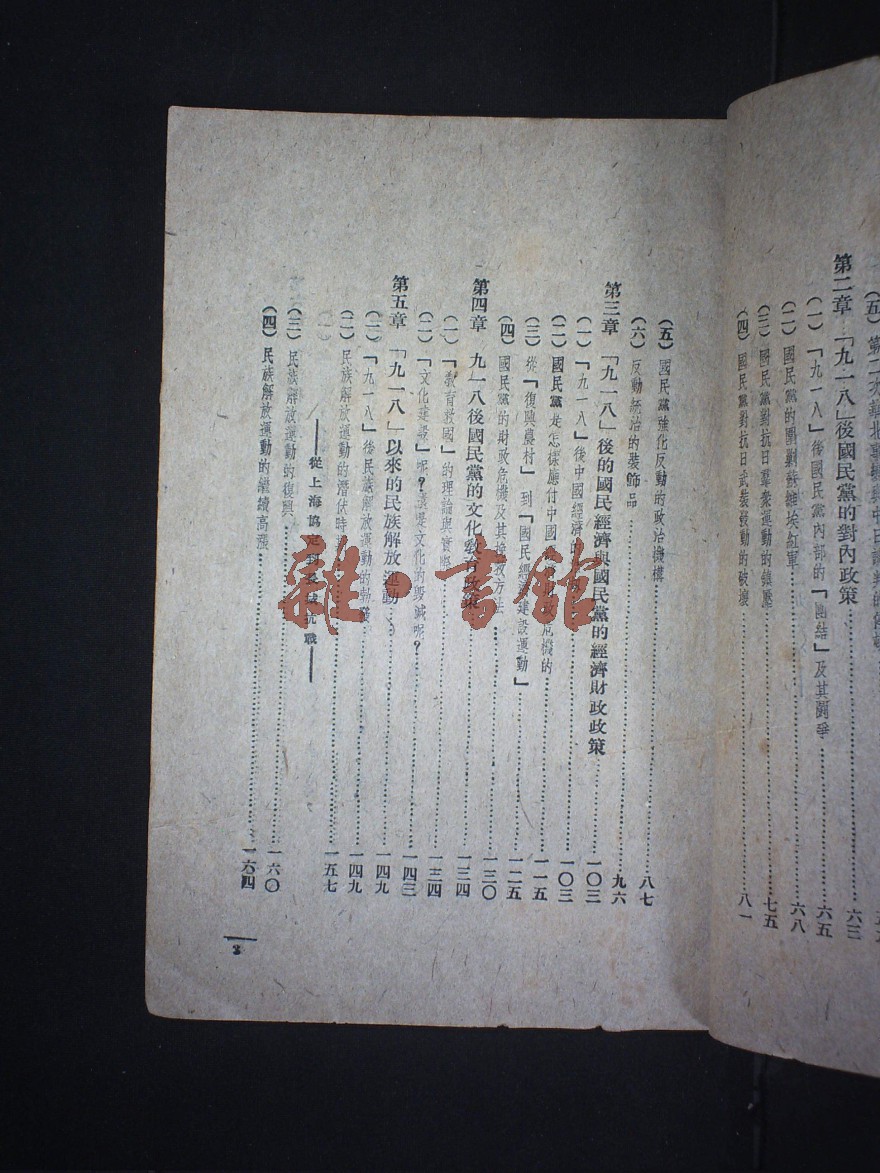 第二章 「九一八」後國民黨的對內政策……六三
(一)「九一八」後國民黨內部的『團結』及其鬪爭……六五
(二)國民黨的圍剿蘇維埃紅軍……六八
(三)國民黨對抗日羣衆運動的鎮壓……七五
(四)國民黨對抗日武裝發動的破壞……八一
(五)國民黨強化反動的政治機構……八七
(六)反動統治的裝飾品……九六
第三章 「九一八」後的國民經濟與國民黨的經濟財政政策……一〇三
(一)「九一八」後中國經濟的……一〇三
(二)國民黨是怎樣應付中國危機的……一一五
(三)從『復興農村』到『國民經濟建設運動』……一二五
(四)國民黨的財政危機及其方法……一三〇
第四章 九一八後國民黨的文化敎育政策……一三四
(一)『敎育救國』的理論與實際……一三四
(二)『文化建設』呢?還是文化的毀滅呢?……一四三
第五章 「九一八」以來的民族解放運動……一四九
(一)「九一八」後民族解放運動的勃發……一四九
(二)民族解放運動的潛伏時……一五七
——從上海協定到抗戰——
(三)民族解放運動的復興……一六〇
(四)民族解放運動的繼續高漲……一六四
3
雜·書館